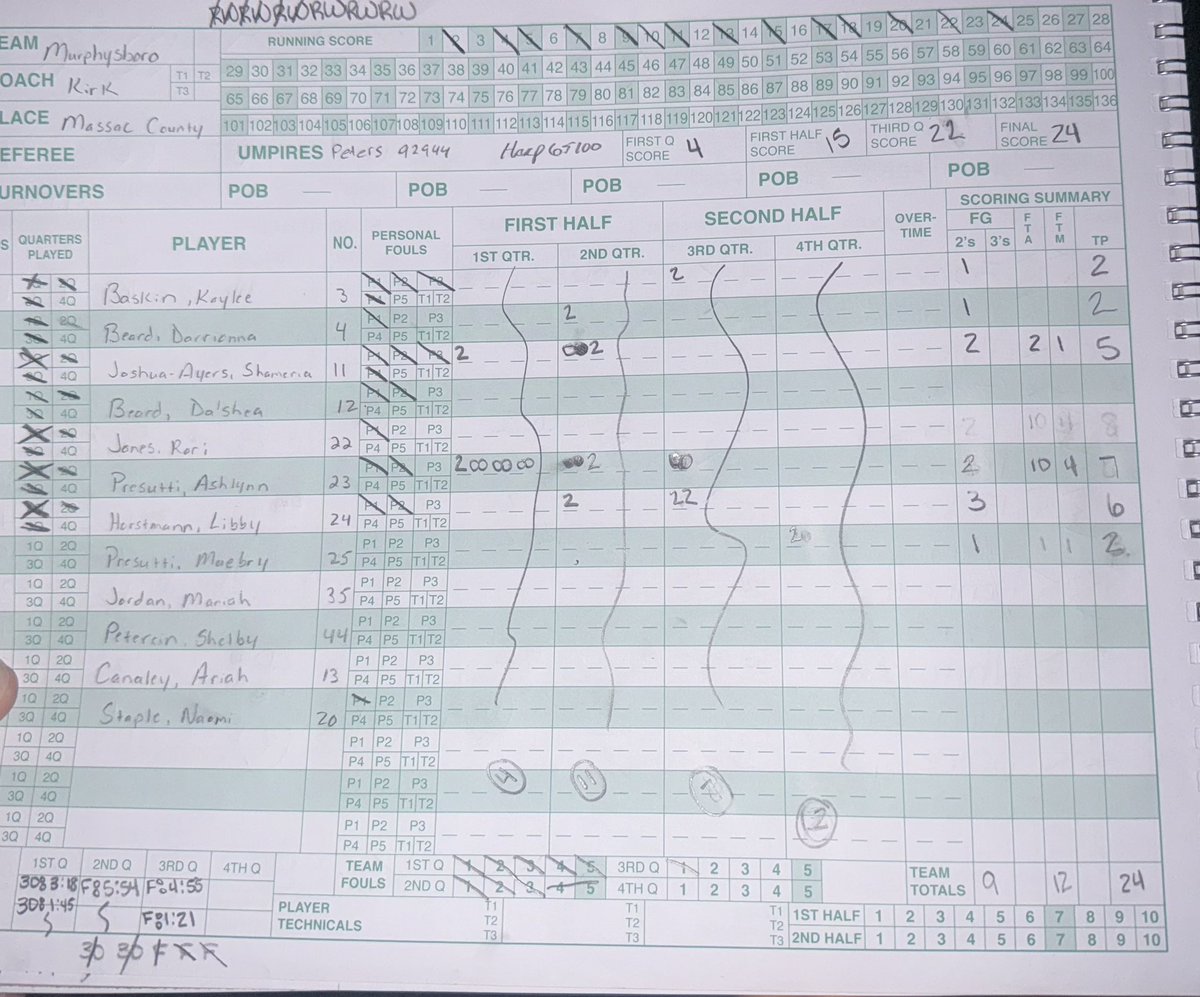 RWRWRWRWRWRW
EAM Murphysboro
RUNNING SCORE 1 2 3 4 5 6 7 8 9 10 11 12 13 14 15 16 17 18 19 20 21 22 23 24 25 26 27 28
29 30 31 32 33 34 35 36 37 38 39 40 41 42 43 44 45 46 47 48 49 50 51 52 53 54 55 56 57 58 59 60 61 62 63 64
OACH Kirk T1 T2 T3
65 66 67 68 69 70 71 72 73 74 75 76 77 78 79 80 81 82 83 84 85 86 87 88 89 90 91 92 93 94 95 96 97 98 99 100
LACE Massac County
101 102 103 104 105 106 107 108 109 110 111 112 113 114 115 116 117 118 119 120 121 122 123 124 125 126 127 128 129 130 131 132 133 134 135 136
EFEREE UMPIRES Peters 92944 FIRST Q SCORE 4 FIRST HALF SCORE 15 THIRD Q SCORE 22 FINAL SCORE 24
URNOVERS POB — POB — POB — POB — POB —
S QUARTERS PLAYED PLAYER NO. PERSONAL FOULS FIRST HALF SECOND HALF OVER-TIME SCORING SUMMARY
1ST QTR. 2ND QTR. 3RD QTR. 4TH QTR. FG 2's 3's FTA FTM TP
4Q Baskin, Kaylee 3 P1 P2 P3 P4 P5 T1 T2 2 1 2
2Q 4Q Beard, Darrionna 4 P1 P2 P3 P4 P5 T1 T2 2 1 2
4Q Joshua-Ayers, Shameria 11 P1 P2 P3 P4 P5 T1 T2 2 2 2 2 1 5
4Q Beard, Da'shea 12 P1 P2 P3 P4 P5 T1 T2
4Q Jones, Rori 22 P1 P2 P3 P4 P5 T1 T2 2 10 8
4Q Presutti, Ashlynn 23 P1 P2 P3 P4 P5 T1 T2 2 2 2 10 4
4Q Horstmann, Libby 24 P1 P2 P3 P4 P5 T1 T2 2 22 3 6
1Q 2Q 3Q 4Q Presutti, Maebry 25 P1 P2 P3 P4 P5 T1 T2 2 1 1 1 2
1Q 2Q 3Q 4Q Jordan, Mariah 35 P1 P2 P3 P4 P5 T1 T2
1Q 2Q 3Q 4Q Petersin, Shelby 44 P1 P2 P3 P4 P5 T1 T2
1Q 2Q 3Q 4Q Canaley, Ariah 13 P1 P2 P3 P4 P5 T1 T2
1Q 2Q 3Q 4Q Staple, Naomi 20 P1 P2 P3 P4 P5 T1 T2
1Q 2Q 3Q 4Q P1 P2 P3 P4 P5 T1 T2
1Q 2Q 3Q 4Q P1 P2 P3 P4 P5 T1 T2 4 11
1Q 2Q 3Q 4Q P1 P2 P3 P4 P5 T1 T2 2
1ST Q 2ND Q 3RD Q 4TH Q
TEAM FOULS 1ST Q 1 2 3 4 5 3RD Q 1 2 3 4 5
2ND Q 1 2 3 4 5 4TH Q 1 2 3 4 5
TEAM TOTALS 9 12 24
3083:18 F85:54 F84:55
308 1:45 F81:21
PLAYER TECHNICALS T1 T2 T3 T1 T2 T3 T1 T2 T3
1ST HALF 1 2 3 4 5 6 7 8 9 10
2ND HALF 1 2 3 4 5 6 7 8 9 10
30 30 F